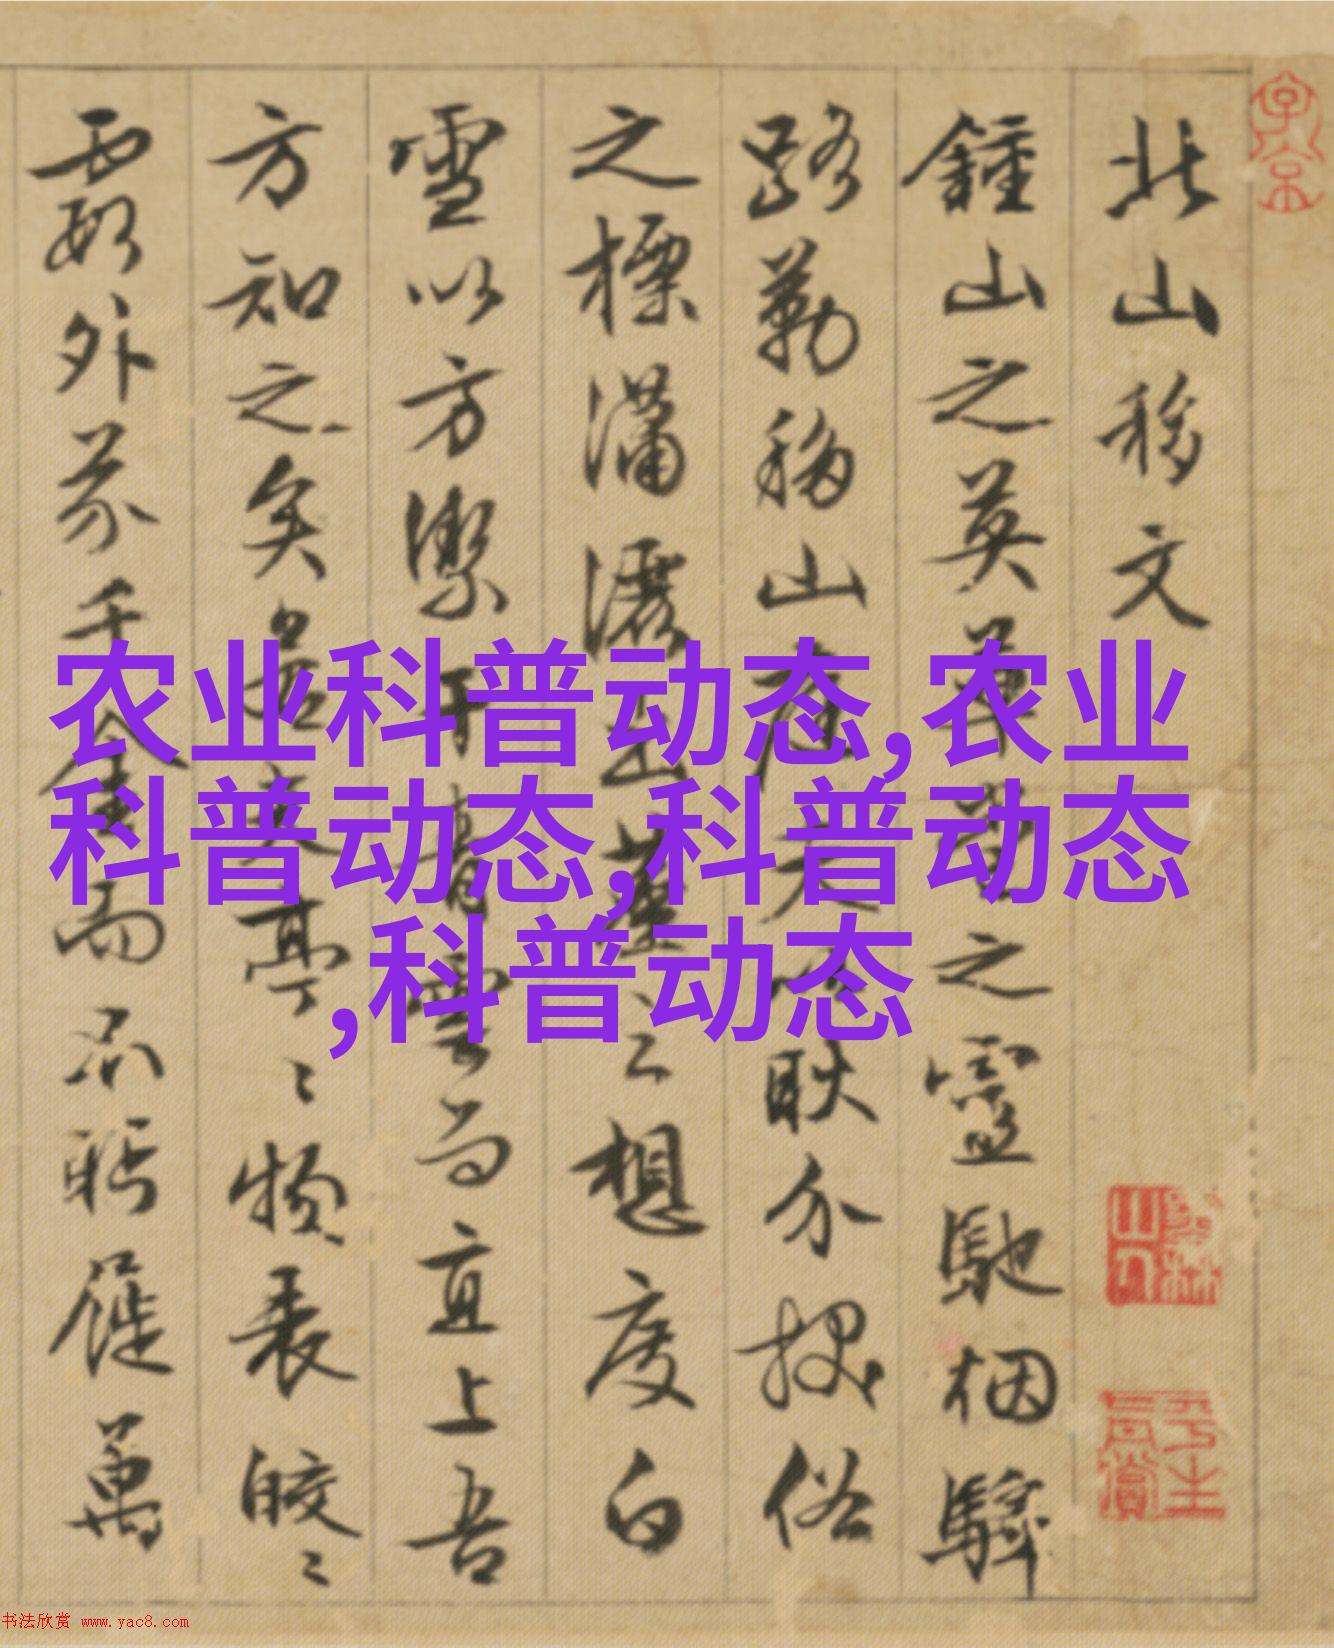 农业科普动态,农业
科普动态,科普动态
,科普动态
子京
北山移文
墨林山人
平生真賞
鍾山之英草堂之靈馳烟驛
路勒移山庭夫以耿介拔俗
之標瀟灑出塵之想度白
雪以方潔干青雲而直上吾
方知之矣若其亭〻物表皎〻
霞外芥千金而不眄屣萬
书法欣赏 www.yac8.com